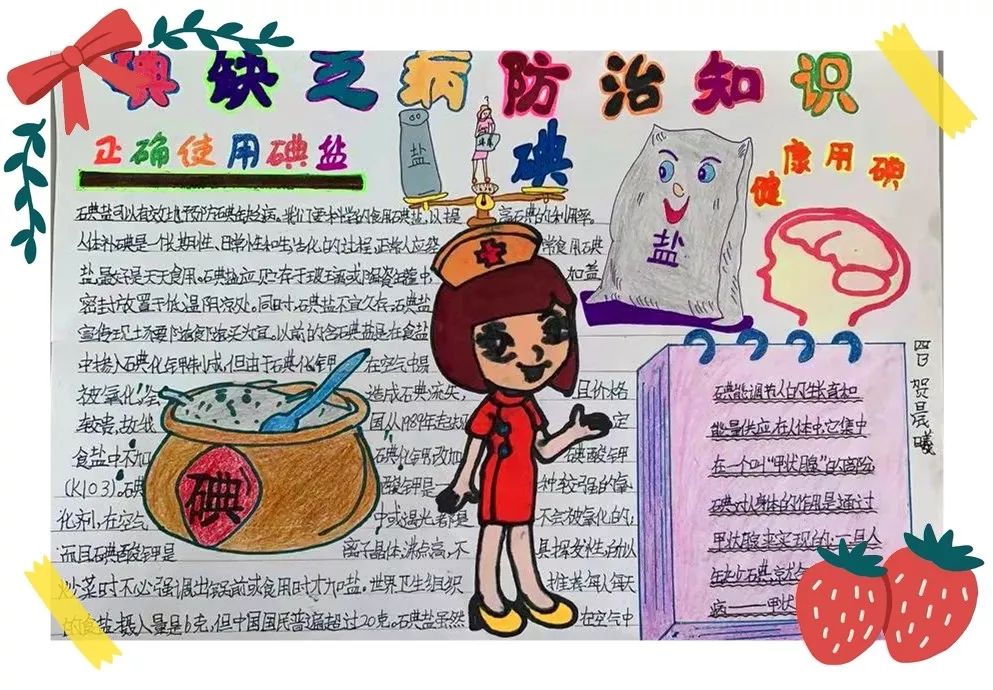 碘缺乏病防治知识
正确使用碘盐
盐
碘
健康用碘
盐
碘盐可以有效地预防碘缺乏病。我们要科学的食用碘盐,以提高碘的利用率。
人体补碘是一个长期性、日常性和生活化的过程,正常人应经常食用碘
盐,最好是天天食用。碘盐应贮存于玻璃或陶瓷缸罐中加盖
密封放置于低温阴凉处。同时,碘盐不宜久存。碘盐
宣传现土不要随食随买为宜。以前的含碘盐是在食盐
中掺入碘化钾制成,但由于碘化钾在空气中易
被氧化 造成碘流失, 且价格
较贵,故 国从1989年起规定
食盐中不加碘化钾,改加碘酸钾
(KIO3)。碘酸钾是 种较强的氧
化剂,在空气中或遇光都是不会被氧化的,
而且碘酸钾是离子晶体,沸点高,不具挥发性,所以
炒菜时不必强调出锅前或食用时才加盐。世界卫生组织推荐每人每天
的食盐摄入量是6克,但中国国民普遍超过20克。碘盐虽然在空气中
碘
碘能调节人的生长育和
能量供应,在人体中,它集中
在一个叫“甲状腺”的
碘对人身体的作用是通过
甲状腺来实现的。一旦人
病——甲状
四日 贺晨曦